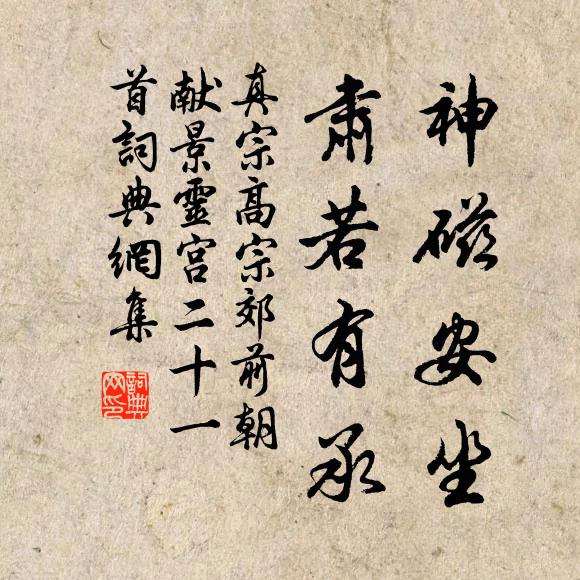 神磁安坐
肃若有承
真宗高宗郊前朝
献景靈宫二十一
首詞典網集
詞典
网印